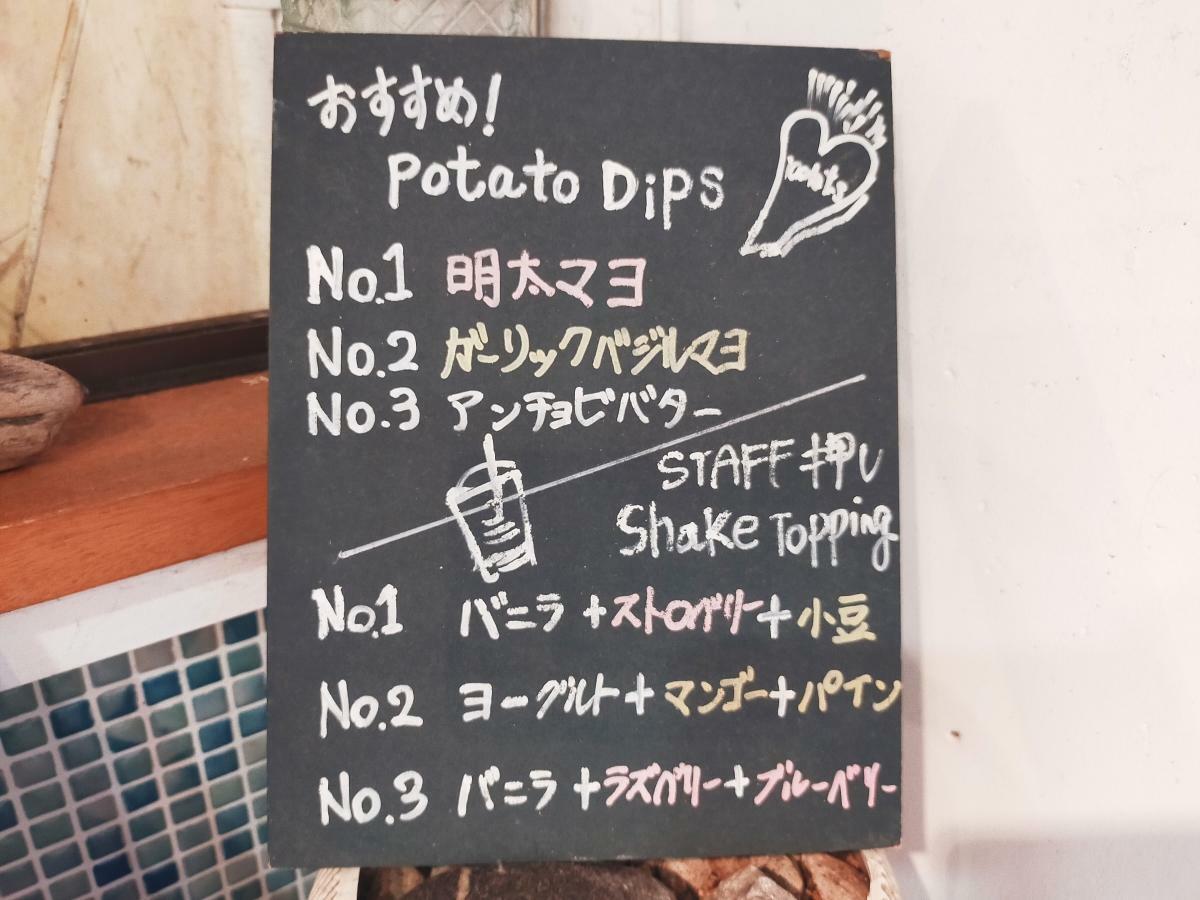 おすすめ!
Potato Dips
No.1 明太マヨ
No.2 ガーリックバジルマヨ
No.3 アンチョビバター
STAFF 押し
Shake Topping
No.1 バニラ+ストロベリー+小豆
No.2 ヨーグルト+マンゴー+パイン
No.3 バニラ+ラズベリー+ブルーベリー